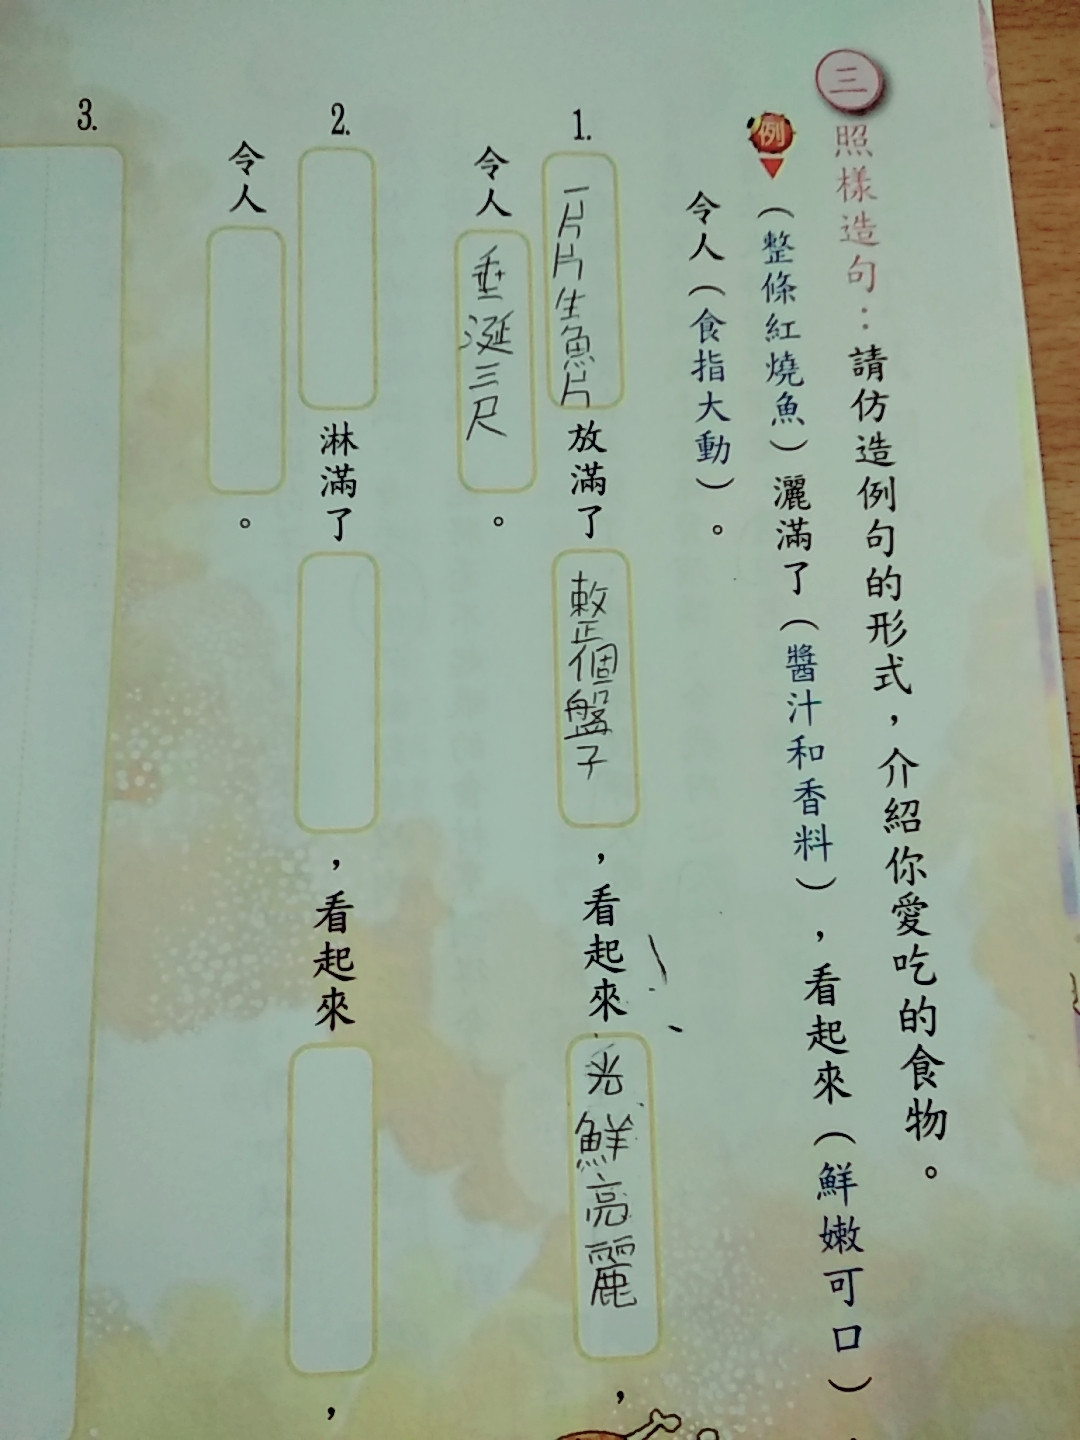 三 照樣造句：請仿造例句的形式，介紹你愛吃的食物。
例 （整條紅燒魚）灑滿了（醬汁和香料），看起來（鮮嫩可口）
令人（食指大動）。
1. 一片片生魚片放滿了整個盤子，看起來光鮮亮麗，
令人垂涎三尺。
2. 淋滿了，看起來，
令人。
3.